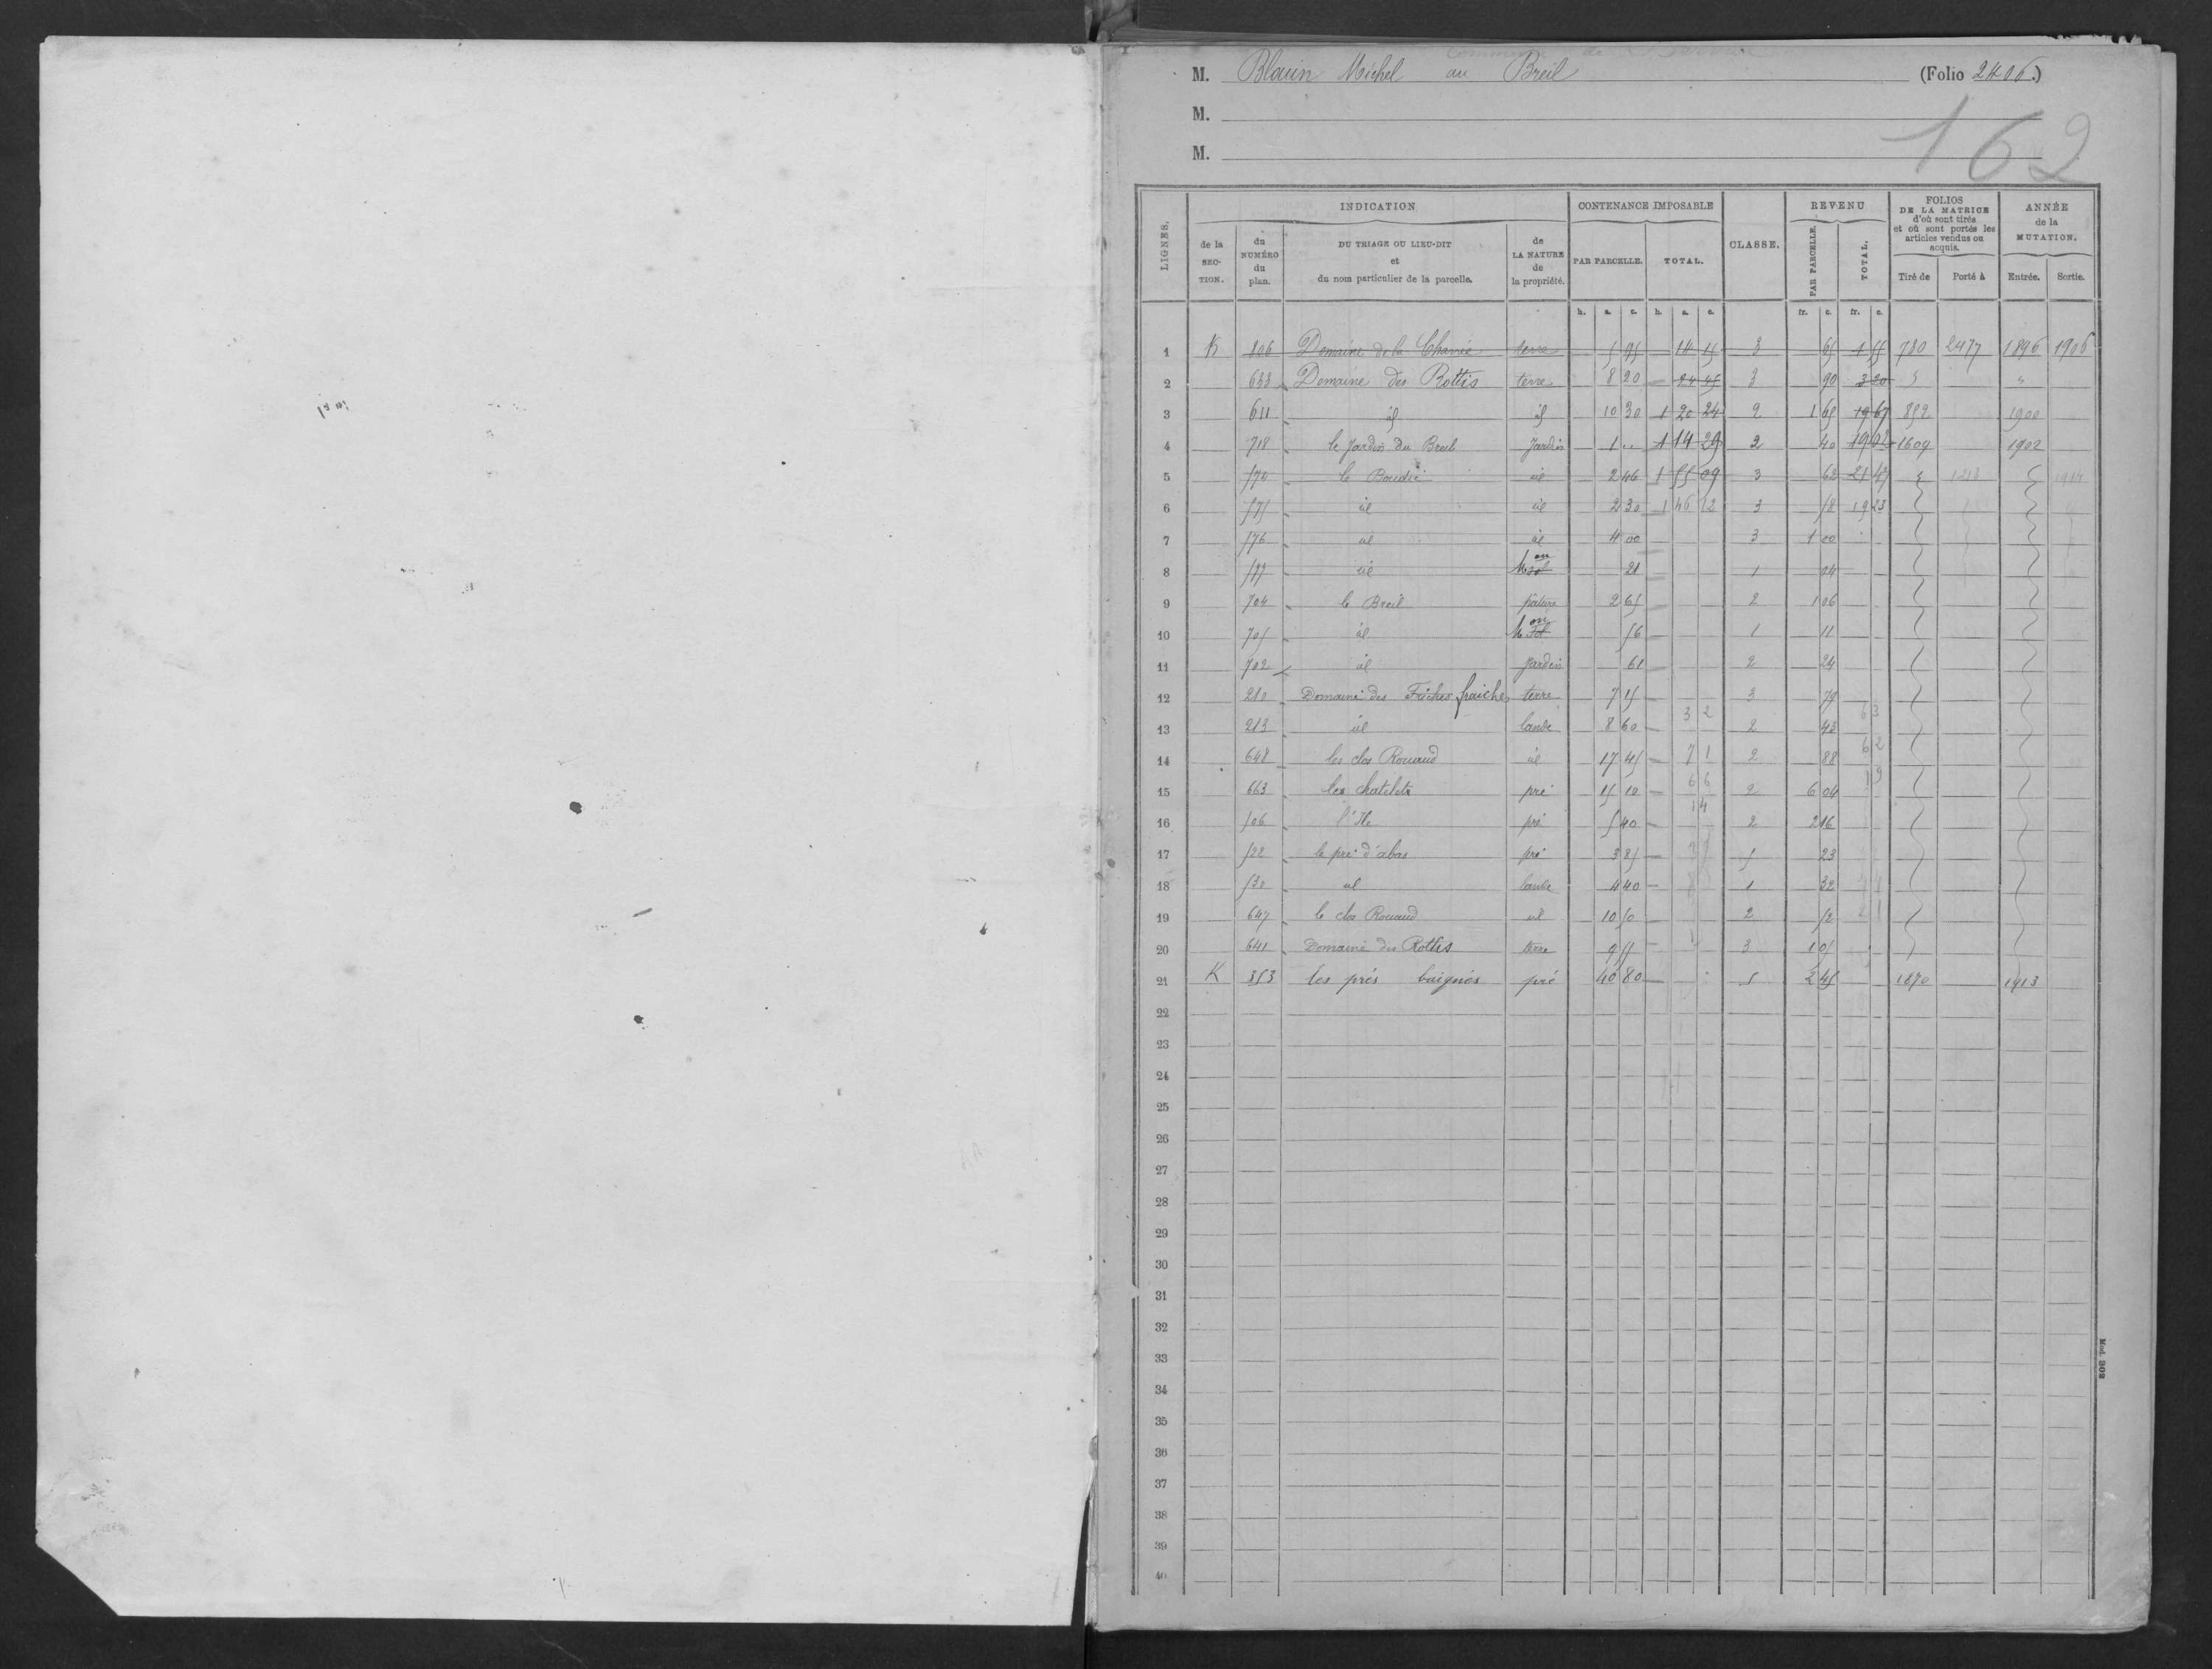 M. Blouin Michel au Breil (Folio 2406.)
M.
M.
162
LIGNES. INDICATION CONTENANCE IMPOSABLE CLASSE. REVENU FOLIOS DE LA MATRICE d'où sont tirés et où sont portés les articles vendus ou acquis. ANNÉE de la MUTATION.
de la SECTION. du NUMÉRO du plan. DU TRIAGE OU LIEU-DIT et du nom particulier de la parcelle. de LA NATURE de la propriété. PAR PARCELLE. TOTAL. PAR PARCELLE. TOTAL. Tiré de Porté à Entrée. Sortie.
h. a. c. h. a. c. fr. c. fr. c.
1 K 806 Domaine de la Charrie terre 5 95 14 15 3 65 1 55 780 2477 1896 1906
2 633 Domaine des Rottis terre 8 20 24 45 3 90 3 20 " "
3 611 id id 10 30 1 20 24 2 1 65 19 67 852 1900
4 718 le Jardin du Breil Jardin 1 " 1 14 29 2 40 19 02 1609 1902
5 574 le Boudié id 2 46 1 55 09 3 62 21 47 1914
6 575 id id 2 30 1 46 12 3 58 19 23
7 576 id id 4 00 3 1 00
8 577 id Mon sol 21 1 04
9 704 le Breil pature 2 65 2 1 06
10 705 id Mon sol 56 1 11
11 702 id Jardin 61 2 24
12 210 Domaine des Friches fraiches terre 7 15 3 79
13 213 id lande 8 60 3 2 2 43 6 3
14 648 les clos Rouaud id 17 45 7 1 2 88 6 2
15 663 les chatelets pré 15 10 6 6 2 6 04 1 9
16 506 l'Ile pré 5 40 1 4 2 2 16
17 522 le pré d'abas pré 3 85 5 23
18 530 id lande 4 40 1 32
19 647 le clos Rouaud id 10 50 2 52
20 641 Domaine des Rottis terre 9 55 3 1 05
21 K 353 les prés baignés pré 40 80 5 2 45 1870 1913
22
23
24
25
26
27
28
29
30
31
32
33
34
35
36
37
38
39
40
Mod. 202